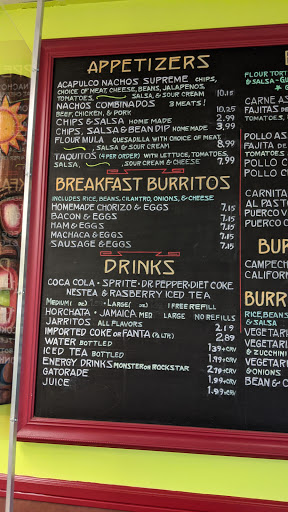 APPETIZERS
ACAPULCO NACHOS SUPREME CHIPS,
CHOICE OF MEAT, CHEESE, BEANS, JALAPENOS,
TOMATOES, SALSA, & SOUR CREAM 10.15
NACHOS COMBINADOS 3 MEATS!
BEEF, CHICKEN, & PORK 10.25
CHIPS & SALSA HOME MADE 2.99
CHIPS, SALSA & BEAN DIP HOME MADE 3.99
FLOR MULA QUESADILLA WITH CHOICE OF MEAT,
SALSA, & SOUR CREAM 8.99
TAQUITOS (4 PER ORDER) WITH LETTUCE, TOMATOES,
SALSA, SOUR CREAM & CHEESE 7.99
BREAKFAST BURRITOS
INCLUDES RICE, BEANS, CILANTRO, ONIONS, & CHEESE
HOMEMADE CHORIZO & EGGS 7.15
BACON & EGGS 7.15
HAM & EGGS 7.15
MACHACA & EGGS 7.15
SAUSAGE & EGGS 7.15
DRINKS
COCA COLA • SPRITE • DR PEPPER • DIET COKE
NESTEA & RASBERRY ICED TEA
MEDIUM LARGE 1 FREE REFILL
HORCHATA • JAMAICA MED LARGE NO REFILLS
JARRITOS ALL FLAVORS 2.19
IMPORTED COKE OR FANTA (½ LTR) 2.89
WATER BOTTLED 1.39+CRV
ICED TEA BOTTLED 1.99+CRV
ENERGY DRINKS MONSTER OR ROCKSTAR 2.79+CRV
GATORADE 1.99+CRV
JUICE 1.99+CRV
FLOUR TORT
& SALSA - GU
CARNE AS
FAJITAS DE
TOMATOES
POLLO AS
FAJITA DE
TOMATOES
POLLO C
POLLO C
CARNITA
AL PASTO
PUERCO V
PUERCO
BU
CAMPECH
CALIFOR
BURR
RICE, BEANS
& SALSA
VEGETAR
VEGETAR
& ZUCCHINI
VEGETAR
& ONIONS
BEAN & C